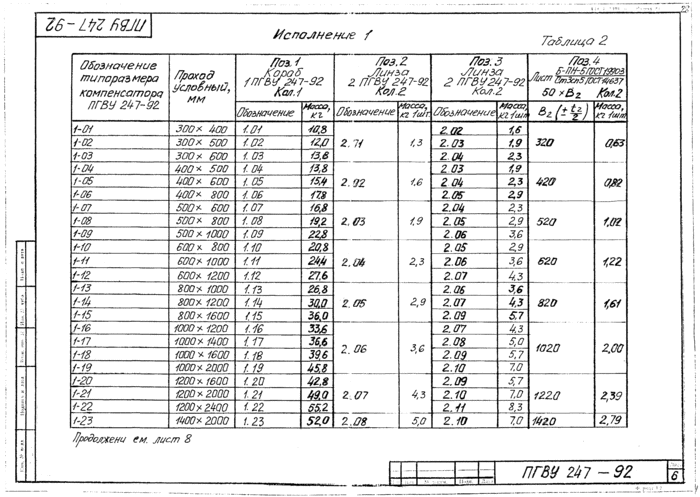 ПГВУ 247-92
Исполнение 1
Таблица 2
Обозначение типоразмера компенсатора ПГВУ 247-92 | Проход условный, мм | Поз. 1 Короб 1 ПГВУ 247-92 Кол. 1 | Поз. 2 Линза 2 ПГВУ 247-92 Кол. 2 | Поз. 3 Линза 2 ПГВУ 247-92 Кол. 2 | Поз. 4 Лист Б-ПН-Б ГОСТ 19903 Ст3сп5 ГОСТ 14637 50 × B2 Кол. 2
Обозначение | Масса, кг | Обозначение | Масса, кг 1шт. | Обозначение | Масса, кг 1шт. | B2 (± t2/2) | Масса, кг 1шт
1-01 300 × 400 1.01 10,8 2.02 1,6
1-02 300 × 500 1.02 12,0 2.71 1,3 2.03 1,9 320 0,63
1-03 300 × 600 1.03 13,6 2.04 2,3
1-04 400 × 500 1.04 13,8 2.03 1,9
1-05 400 × 600 1.05 15,4 2.92 1,6 2.04 2,3 420 0,82
1-06 400 × 800 1.06 17,8 2.05 2,9
1-07 500 × 600 1.07 16,8 2.04 2,3
1-08 500 × 800 1.08 19,2 2.03 1,9 2.05 2,9 520 1,02
1-09 500 × 1000 1.09 22,8 2.06 3,6
1-10 600 × 800 1.10 20,8 2.05 2,9
1-11 600 × 1000 1.11 24,4 2.04 2,3 2.06 3,6 620 1,22
1-12 600 × 1200 1.12 27,6 2.07 4,3
1-13 800 × 1000 1.13 26,8 2.06 3,6
1-14 800 × 1200 1.14 30,0 2.05 2,9 2.07 4,3 820 1,61
1-15 800 × 1600 1.15 36,0 2.09 5,7
1-16 1000 × 1200 1.16 33,6 2.07 4,3
1-17 1000 × 1400 1.17 36,6 2.06 3,6 2.08 5,0 1020 2,00
1-18 1000 × 1600 1.18 39,6 2.09 5,7
1-19 1000 × 2000 1.19 45,8 2.10 7,0
1-20 1200 × 1600 1.20 42,8 2.09 5,7
1-21 1200 × 2000 1.21 49,0 2.07 4,3 2.10 7,0 1220 2,39
1-22 1200 × 2400 1.22 55,2 2.11 8,3
1-23 1400 × 2000 1.23 52,0 2.08 5,0 2.10 7,0 1420 2,79
Продолжени ем. лист 8
ПГВУ 247 - 92
6